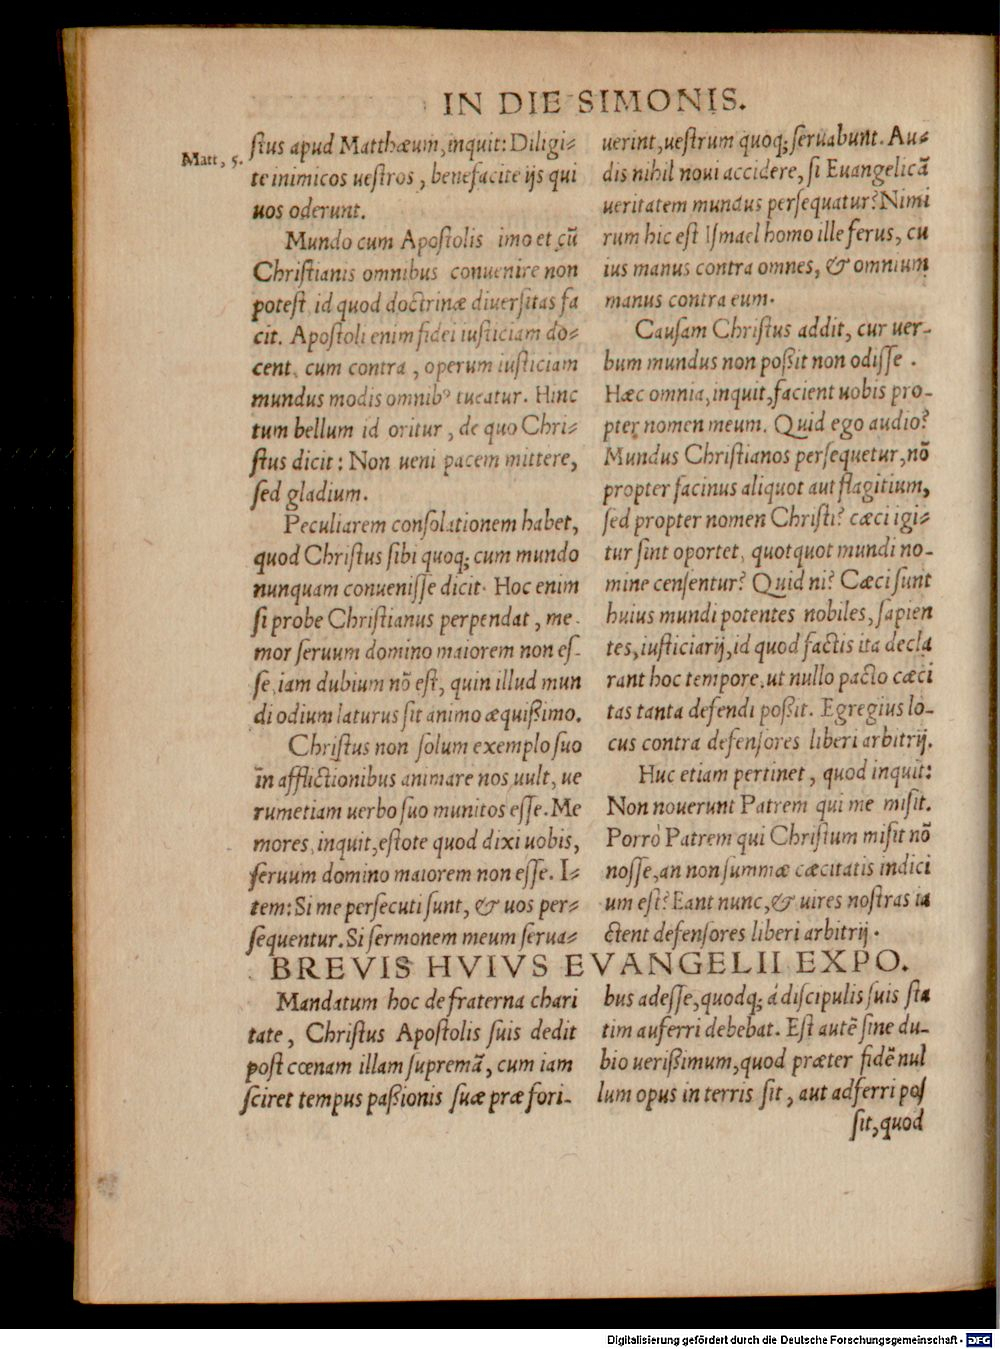 IN DIE SIMONIS.
Matt, 5.
ſtus apud Matthæum, inquit: Diligi⸗
te inimicos ueſtros, benefacite ijs qui
uos oderunt.
Mundo cum Apoſtolis imo et cū
Chriſtianis omnibus conuenire non
poteſt, id quod doctrinæ diuerſitas fa
cit. Apoſtoli enim fidei iuſticiam do⸗
cent, cum contra, operum iuſticiam
mundus modis omnibꝰ tueatur. Hinc
tum bellum id oritur, de quo Chri⸗
ſtus dicit: Non ueni pacem mittere,
ſed gladium.
Peculiarem conſolationem habet,
quod Chriſtus ſibi quoq; cum mundo
nunquam conueniſſe dicit. Hoc enim
ſi probe Chriſtianus perpendat, me-
mor ſeruum domino maiorem non eſ-
ſe, iam dubium nō eſt, quin illud mun
di odium laturus ſit animo æquißimo.
Chriſtus non ſolum exemplo ſuo
in afflictionibus animare nos uult, ue
rumetiam uerbo ſuo munitos eſſe. Me
mores, inquit, eſtote quod dixi uobis,
ſeruum domino maiorem non eſſe. I⸗
tem: Si me perſecuti ſunt, & uos per⸗
ſequentur. Si ſermonem meum ſerua⸗
uerint, ueſtrum quoq; ſeruabunt. Au⸗
dis nihil noui accidere, ſi Euangelicā
ueritatem mundus perſequatur? Nimi
rum hic eſt Iſmael homo ille ferus, cu
ius manus contra omnes, & omnium
manus contra eum.
Cauſam Chriſtus addit, cur uer-
bum mundus non poßit non odiſſe.
Hæc omnia, inquit, facient uobis pro-
pter nomen meum. Quid ego audio?
Mundus Chriſtianos perſequetur, nō
propter facinus aliquot aut flagitium,
ſed propter nomen Chriſti? cæci igi⸗
tur ſint oportet, quotquot mundi no-
mine cenſentur? Quid ni? Cæci ſunt
huius mundi potentes nobiles, ſapien
tes, iuſticiarij, id quod factis ita decla
rant hoc tempore, ut nullo pacto cæci
tas tanta defendi poßit. Egregius lo-
cus contra defenſores liberi arbitrij.
Huc etiam pertinet, quod inquit:
Non nouerunt Patrem qui me miſit.
Porro Patrem qui Chriſtum miſit nō
noſſe, an non ſummæ cæcitatis indici
um eſt? Eant nunc, & uires noſtras ia
ctent defenſores liberi arbitrij.
BREVIS HVIVS EVANGELII EXPO.
Mandatum hoc de fraterna chari
tate, Chriſtus Apoſtolis ſuis dedit
poſt cœnam illam ſupremā, cum iam
ſciret tempus paßionis ſuæ præ fori-
bus adeſſe, quodq; á diſcipulis ſuis ſta
tim auferri debebat. Eſt autē ſine du-
bio uerißimum, quod præter fidē nul
lum opus in terris ſit, aut adferri poſ
ſit, quod
Digitalisierung gefördert durch die Deutsche Forschungsgemeinschaft - DFG